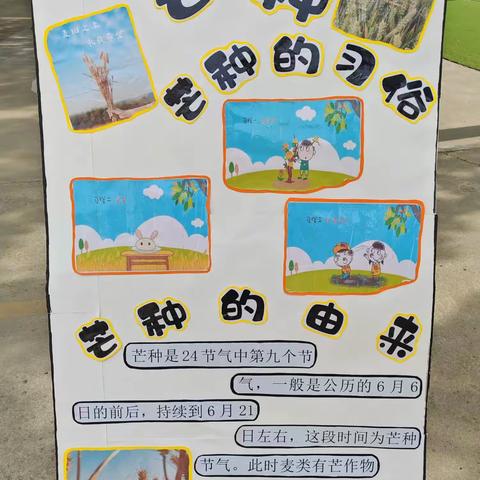 芒种
芒种的习俗
芒种的由来
芒种是24节气中第九个节
气，一般是公历的6月6
日的前后，持续到6月21
日左右，这段时间为芒种
节气。此时麦类有芒作物